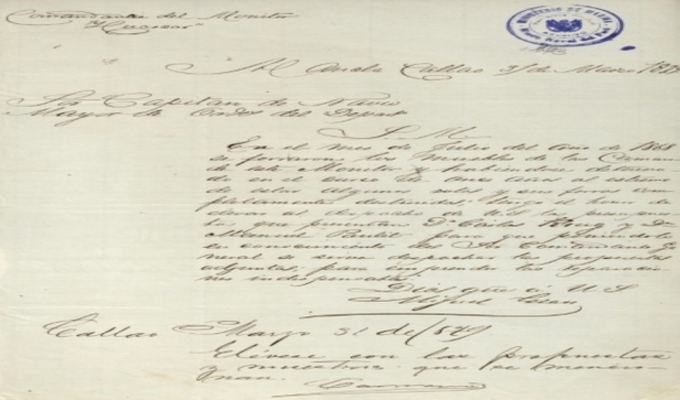 Comandancia del Monitor
"Huascar"
MINISTERIO DE MARINA
Al Ancla Callao 31 de Marzo 1879
Sor Capitan de Navio
Mayor de Ordes del Depart
S. M.
En el mes de Julio del año de 1868
se forraron los muebles de las Camaras
de este Monitor y habiendose deteriorado
en el curso de once años al estremo
de estar algunos rotos y sus forros com
pletamente destruidos; tengo el honor de
elevar al despacho de U.S. las propues
tas que presentan Dn Carlos y Dn
Manuel para que
en conocimiento del Sr Comandante Ge
neral se sirva despachar las propuestas
adjuntas; para emprender las reparacio
nes indispensables.
Dios gue á U.S.
Miguel Grau
Callao Marzo 31 de 1879
Elévese con las propuestas
y muestras que se mencio
nan.